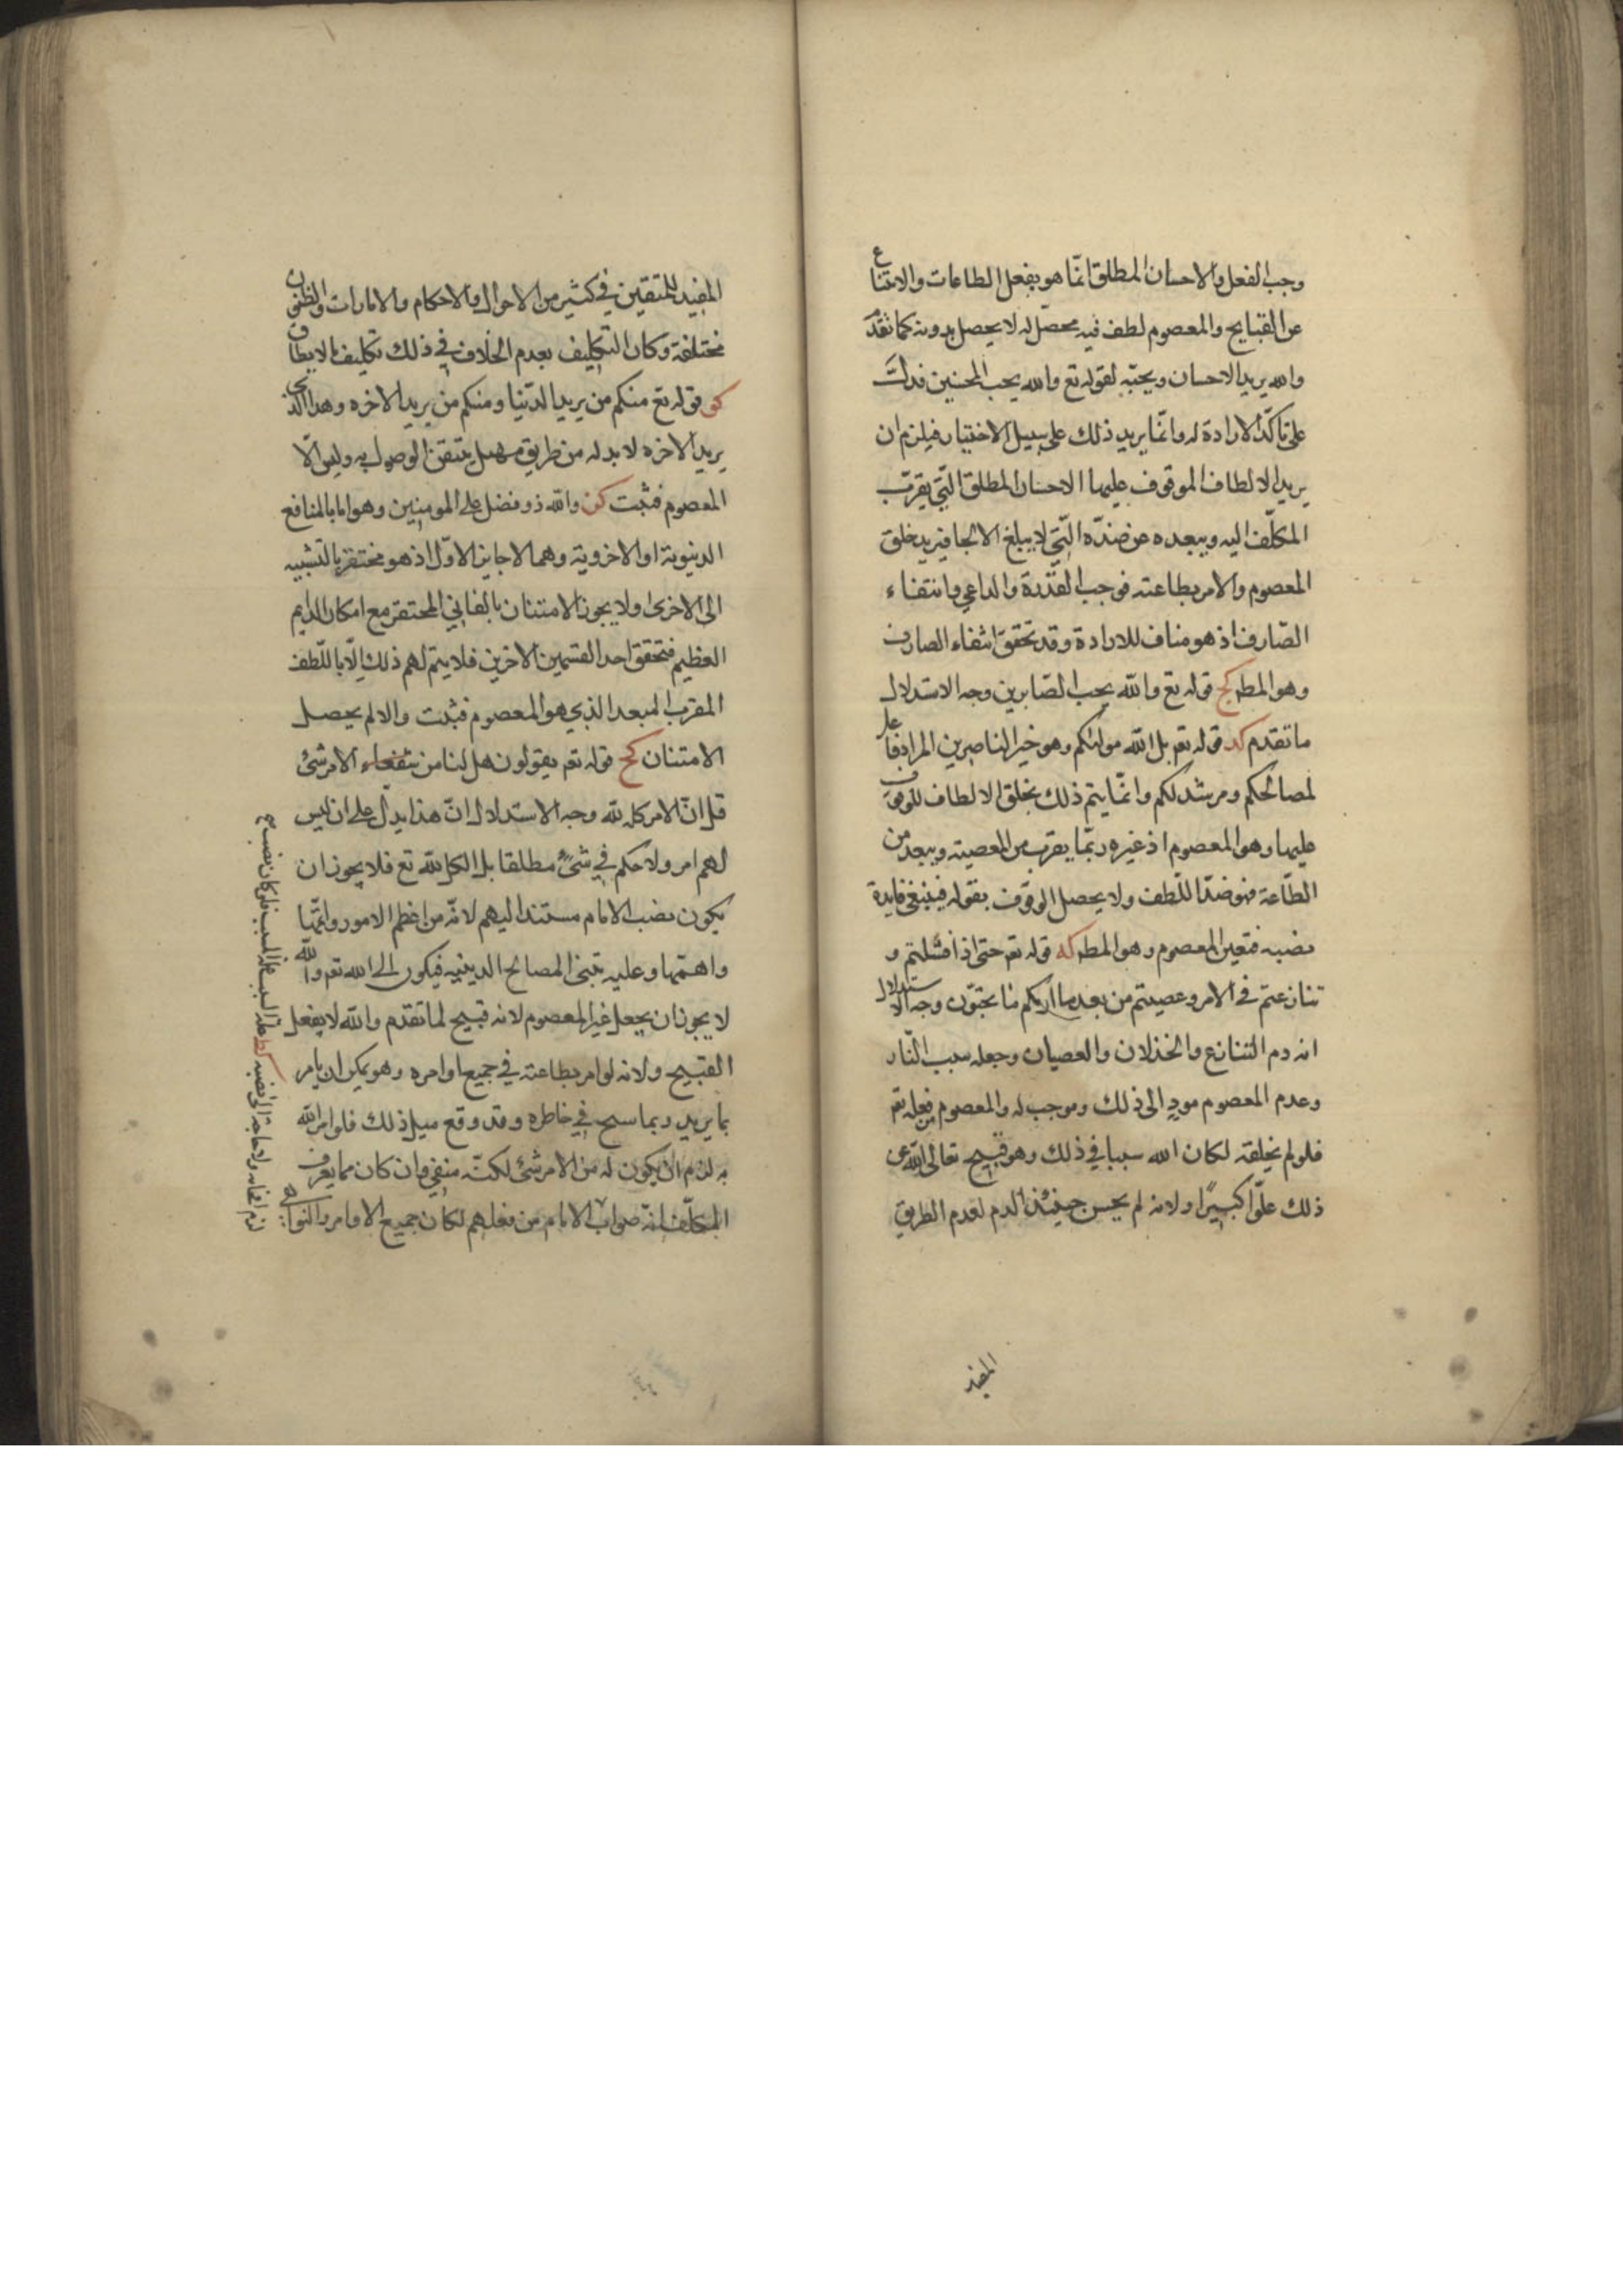 وجب الفعل والاحسان المطلق انّما هو بفعل الطاعات والامتناع
عن القبايح والمعصوم لطف فيه محصّل له لا يحصل بدونه كما تقدّم
والله يريد الاحسان ويحبّه لقوله تع والله يحب المحسنين فدلّت
على تاكّد الارادة له وانّما يريد ذلك على سبيل الاختيار فيلزم ان
يريد الالطاف الموقوف عليها الاحسان المطلق الّتي يقرّب
المكلّف اليه ويبعده عن ضدّه الّتي لا يبلغ الالجا فيريد خلق
المعصوم والامر بطاعته فوجب القدرة والداعي وانتفاء
الصّارف اذ هو مناف للارادة وقد تحقق انتفاء الصارف
وهو المط كج قوله تع والله يحب الصّابرين وجه الاستدلال
ما تقدم كد قوله تع بل الله موليكم وهو خير الناصرين المراد فاعل
لمصالحكم ومرشد لكم وانّما يتم ذلك بخلق الالطاف الموقوف
عليها وهو المعصوم اذ غيره ربّما يقرب من المعصية ويبعد من
الطّاعة فهو ضدّ اللّطف ولا يحصل الوقوف بقوله فينتفي فايدة
نصبه فتعين المعصوم وهو المط كه قوله تع حتى اذا فشلتم و
تنازعتم في الامر وعصيتم من بعد ما اريكم ما تحبّون وجه الاستدلال
انه ذم التنازع والخذلان والعصيان وجعله سبب النّار
وعدم المعصوم مودٍ الى ذلك وموجب له والمعصوم من فعله تع
فلو لم يخلقه لكان الله سببا في ذلك وهو قبيح تعالى الله عن
ذلك علوّا كبيرًا ولانه لم يحسن حينئذ الذم لعدم الطريق
المفيد
المفيد لليقين في كثير من الاحوال والاحكام والامارات والظنون
مختلفة وكان التكليف بعدم الخلاف في ذلك تكليف مالا يطاق
كو قوله تع منكم من يريد الدّنيا ومنكم من يريد الاخره وهذا الذي
يريد الاخره لا بد له من طريق سهل يتيقن الوصول به وليس الّا
المعصوم فثبت كز والله ذو فضل على المومنين وهو اما بالمنافع
الدنيوية او الاخروية وهما لا جايز الاوّل اذ هو محتقر بالنسبة
الى الاخرى ولا يجوز الامتنان بالفاني المحتقر مع امكان الدايم
العظيم فتحقق احد القسمين الاخرين فلا يتم لهم ذلك الّا باللّطف
المقرب المبعد الذي هو المعصوم فثبت والا لم يحصل
الامتنان كح قوله تع يقولون هل لنا من الامر شئ
قل ان الامر كله لله وجه الاستدلال انّ هذا يدلّ على ان ليس
لهم امر ولا حكم في شئ مطلقا بل الكل لله تع فلا يجوز ان
يكون نصب الامام مستندا اليهم لانّه من اعظم الامور واتمّها
واهمّها وعليه تبتنى المصالح الدينيه فيكون الى الله تع والله
لا يجوز ان يجعل غير المعصوم لانه قبيح لما تقدم والله لا يفعل
القبيح ولانه لو امر بطاعته في جميع اوامره وهو يمكن ان يامر
بما يريد وبما سنح في خاطره وقد وقع مثل ذلك فلو امر الله
به لزم ان يكون له من الامر شئ لكنّه منفي وان كان مما يعرف
المكلّف انّه صواب الامام من فعلهم لكان جميع الاوامر والنواهي
لزم افحامه ولا حاجة الى نصبه كط علة السبب علة المسبب فلو كان نصب